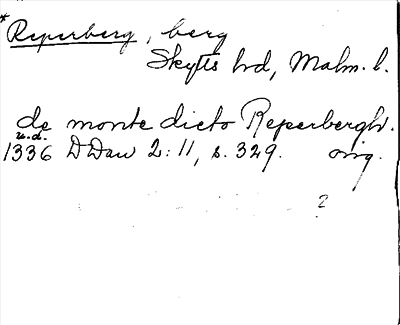 * Reperberg, berg
Skytts hd, Malm. l.
de monte dicto Reperbergh.
u.d.
1336 DDan 2:11, s. 329. orig.
?